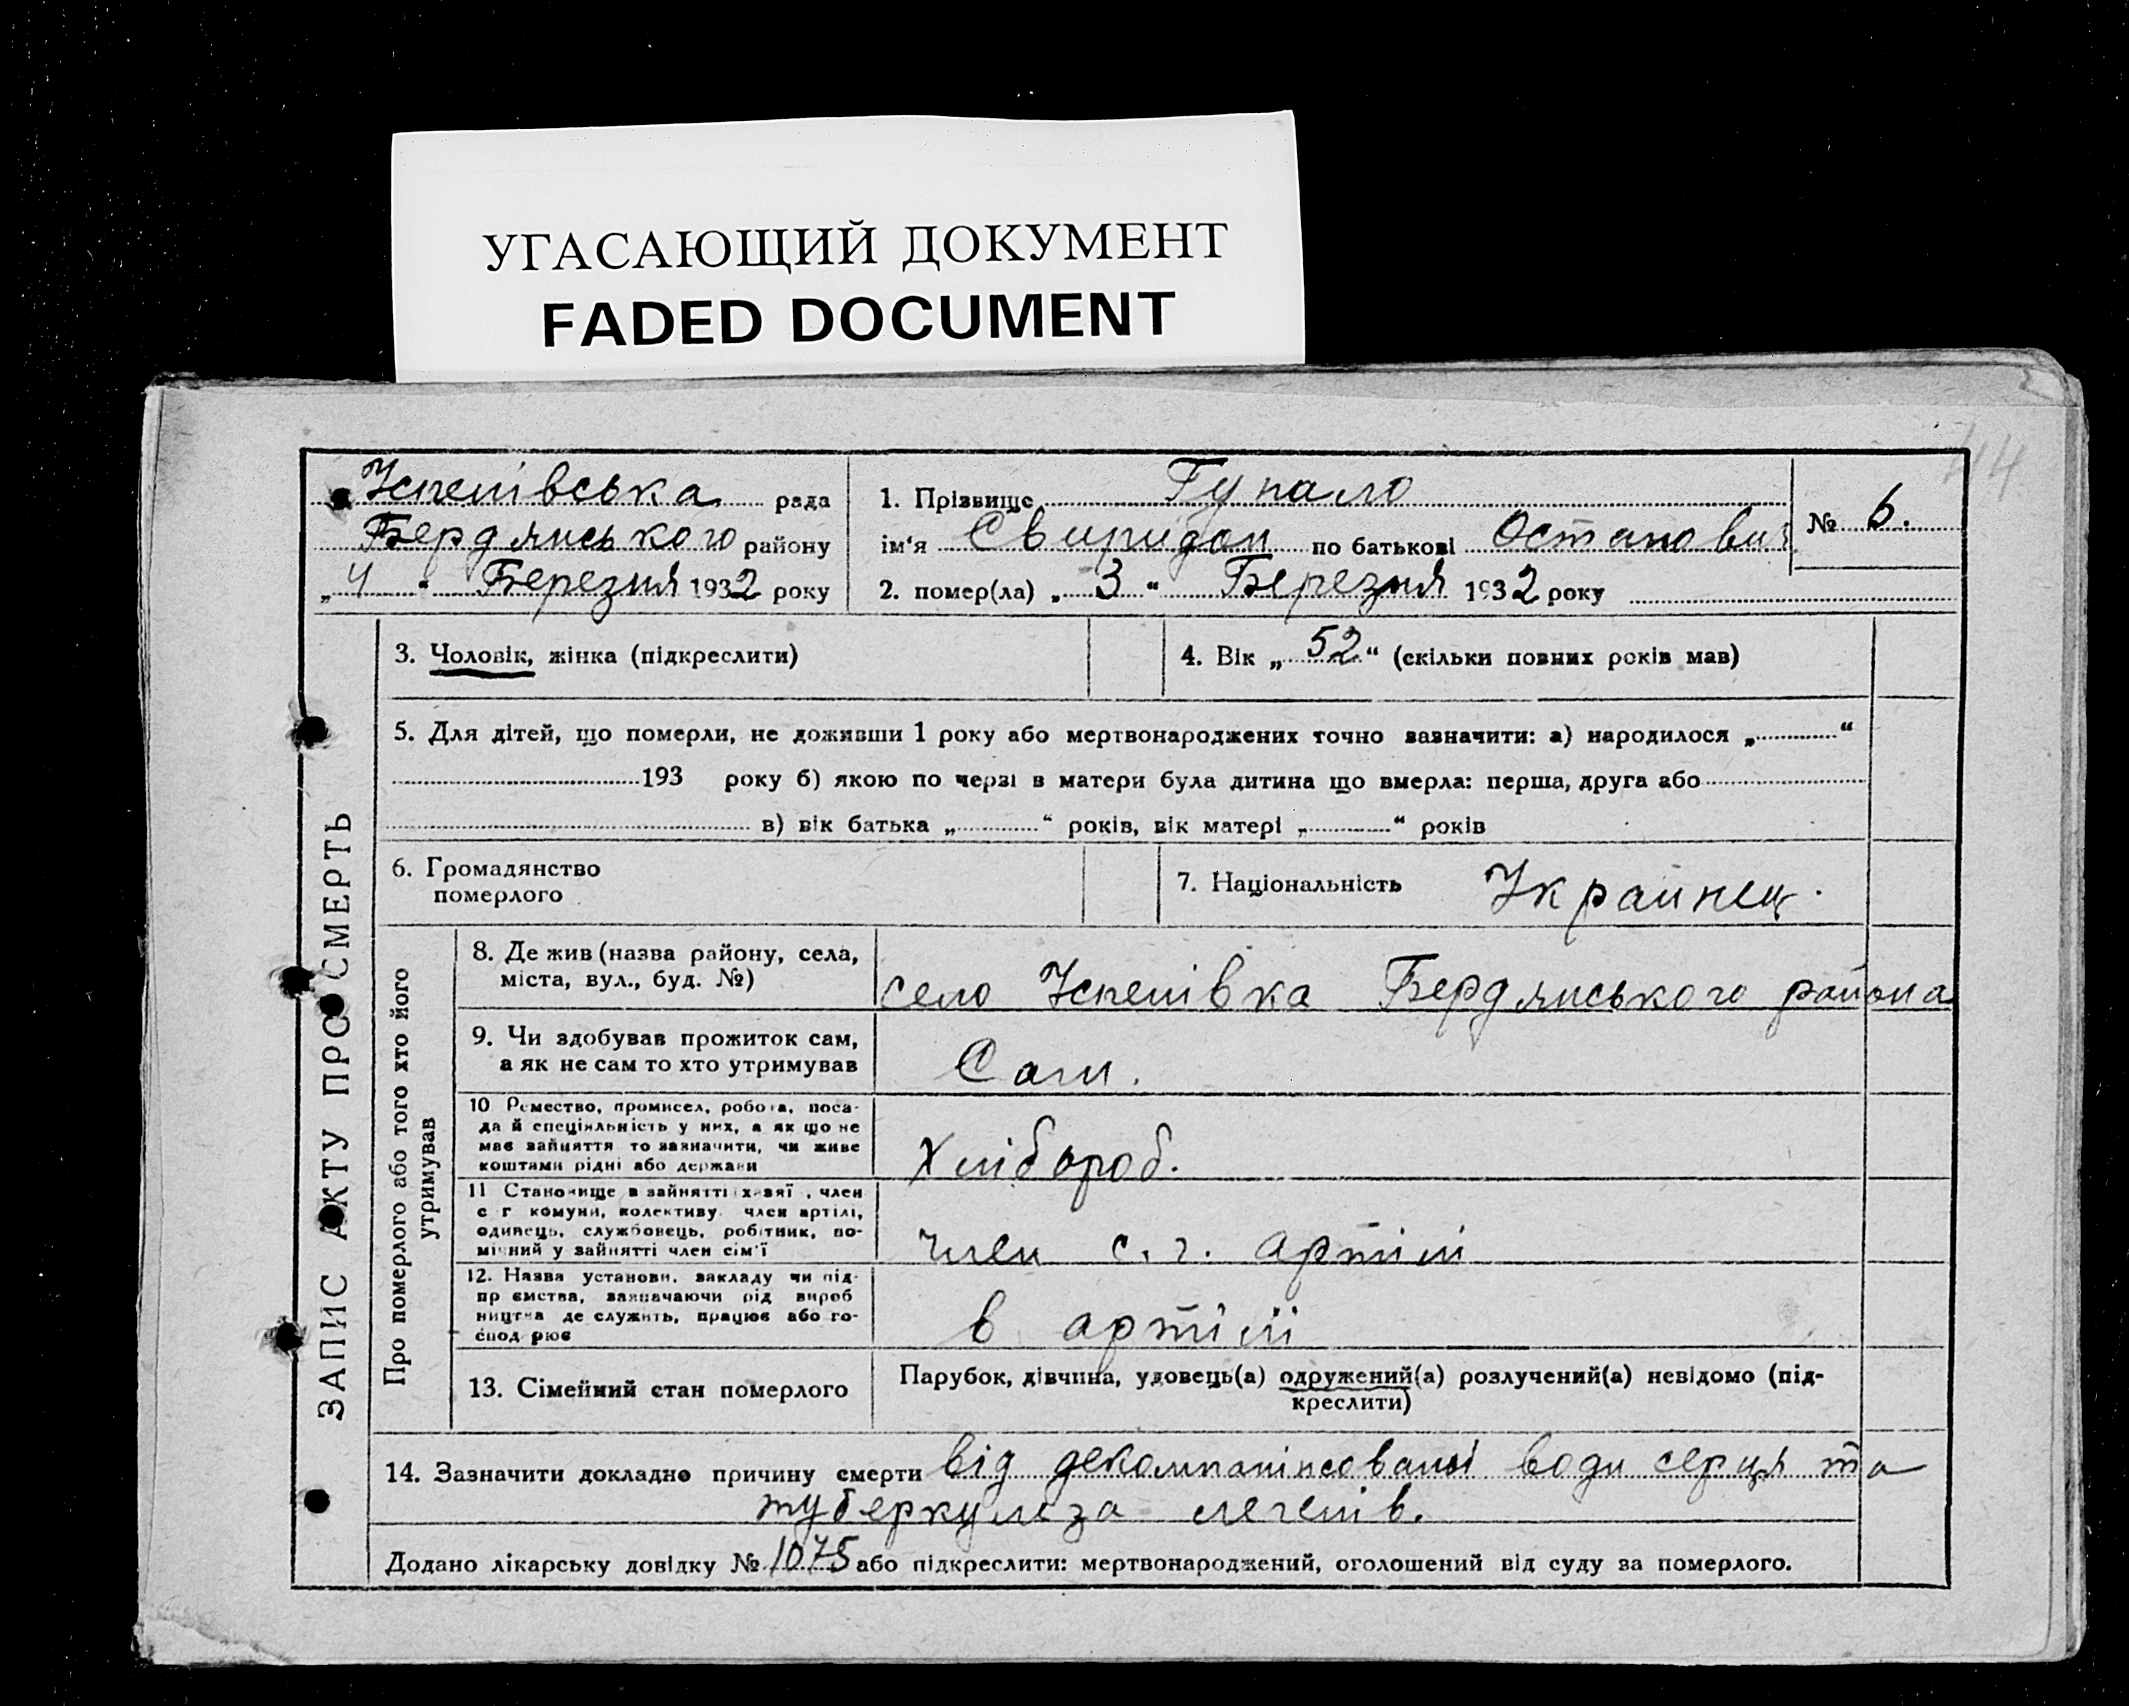 УГАСАЮЩИЙ ДОКУМЕНТ
FADED DOCUMENT
114
Успенівська рада
Бердянського району
„4“ Березня 1932 року
1. Прізвище Гупало
ім‘я Свиридон по батькові Остапович
2. помер(ла) „3“ Березня 1932 року
№ 6.
ЗАПИС АКТУ ПРО СМЕРТЬ
3. Чоловік, жінка (підкреслити)
4. Вік „52“ (скільки повних років мав)
5. Для дітей, що померли, не доживши 1 року або мертвонароджених точно зазначити: а) народилося „ “
193 року б) якою по черзі в матери була дитина що вмерла: перша, друга або
в) вік батька „ “ років, вік матері „ “ років
6. Громадянство
померлого
7. Національність Украинец.
Про померлого або того хто його
утримував
8. Де жив (назва району, села,
міста, вул., буд. №)
село Успенівка Бердянського района
9. Чи здобував прожиток сам,
а як не сам то хто утримував
Сам.
10 Ремество, промисел, робота, поса-
да й спеціяльність у них, а як що не
має зайняття то зазначити, чи живе
коштами рідні або держави
Хлібороб.
11 Становище в зайнятті хазяї , член
с г комуни, колективу член артілі,
одинець, службовець, робітник, по-
мічний у зайнятті член сім'ї
член с. г. артілі
12. Назва установи, закладу чи під-
пр ємства, зазначаючи рід вироб
ництва де служить, працює або го-
спод рює
в артілі
13. Сімейний стан померлого
Парубок, дівчина, удовець(а) одружений(а) розлучений(а) невідомо (під-
креслити)
14. Зазначити докладно причину смерти від води серця та
туберкульоза легенів.
Додано лікарську довідку № 1075 або підкреслити: мертвонароджений, оголошений від суду за померлого.